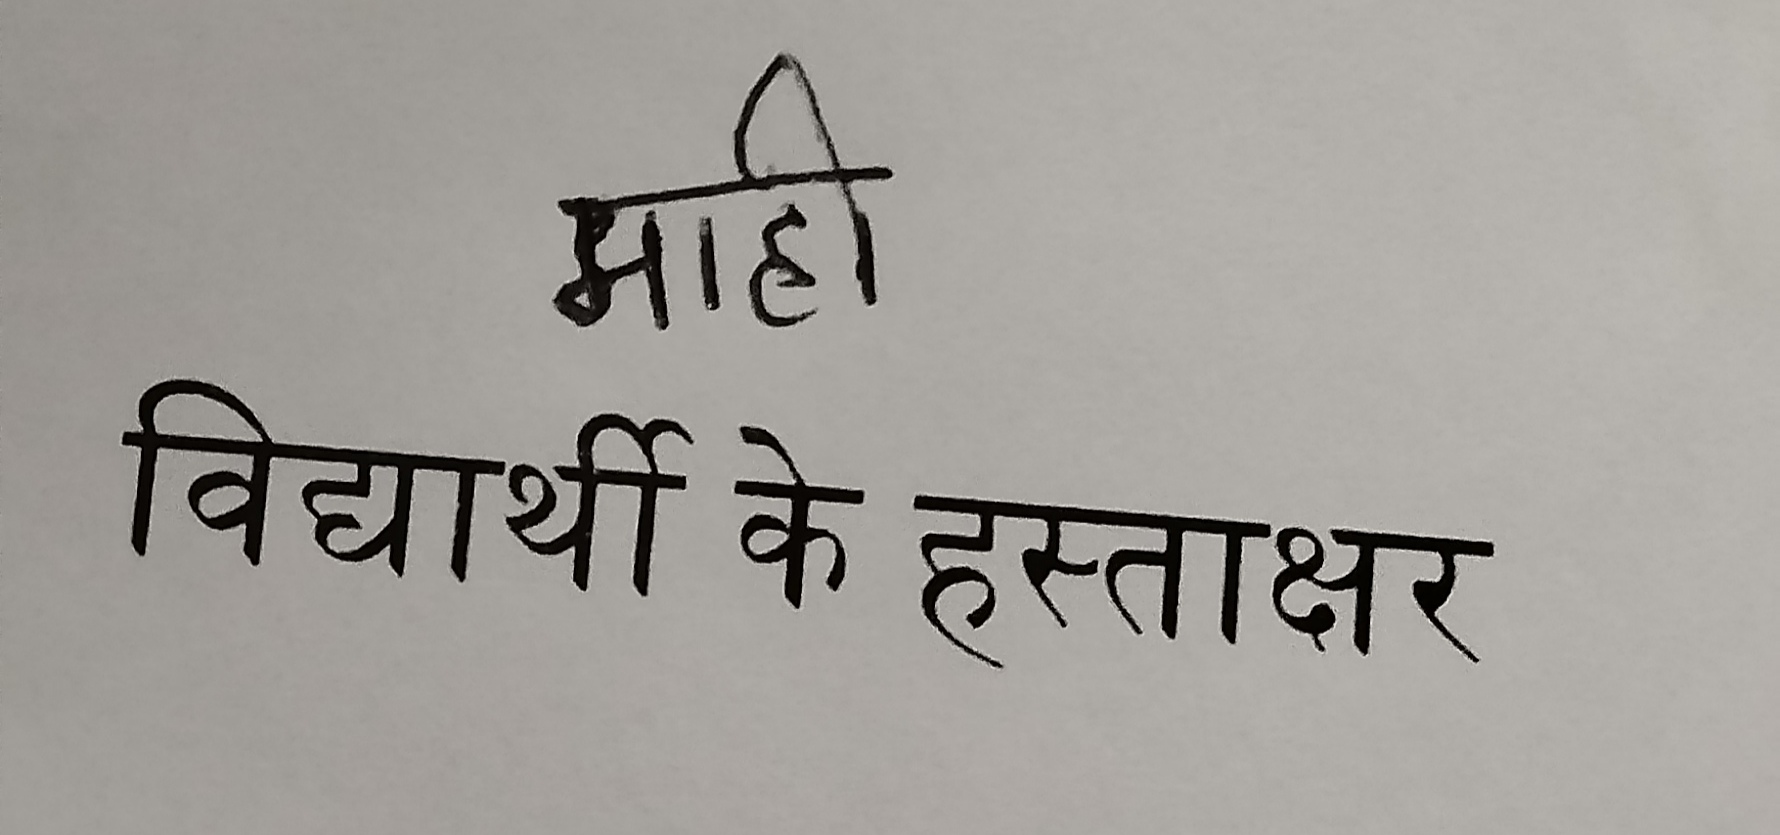 माही
विद्यार्थी के हस्ताक्षर